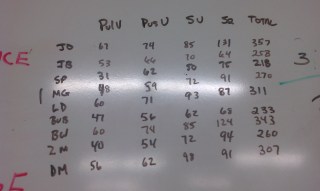 PulU PusU SU S2 TOTAL
JD 67 74 85 131 357
JB 53 66 10 64 258
SP 31 62 50 75 218
1 MG 48 59 72 91 270
LD 60 71 93 87 311
BUB 47 56 62 68 233
BW 60 74 85 124 343
ZM 40 54 72 94 260
DM 56 62 98 91 307
3